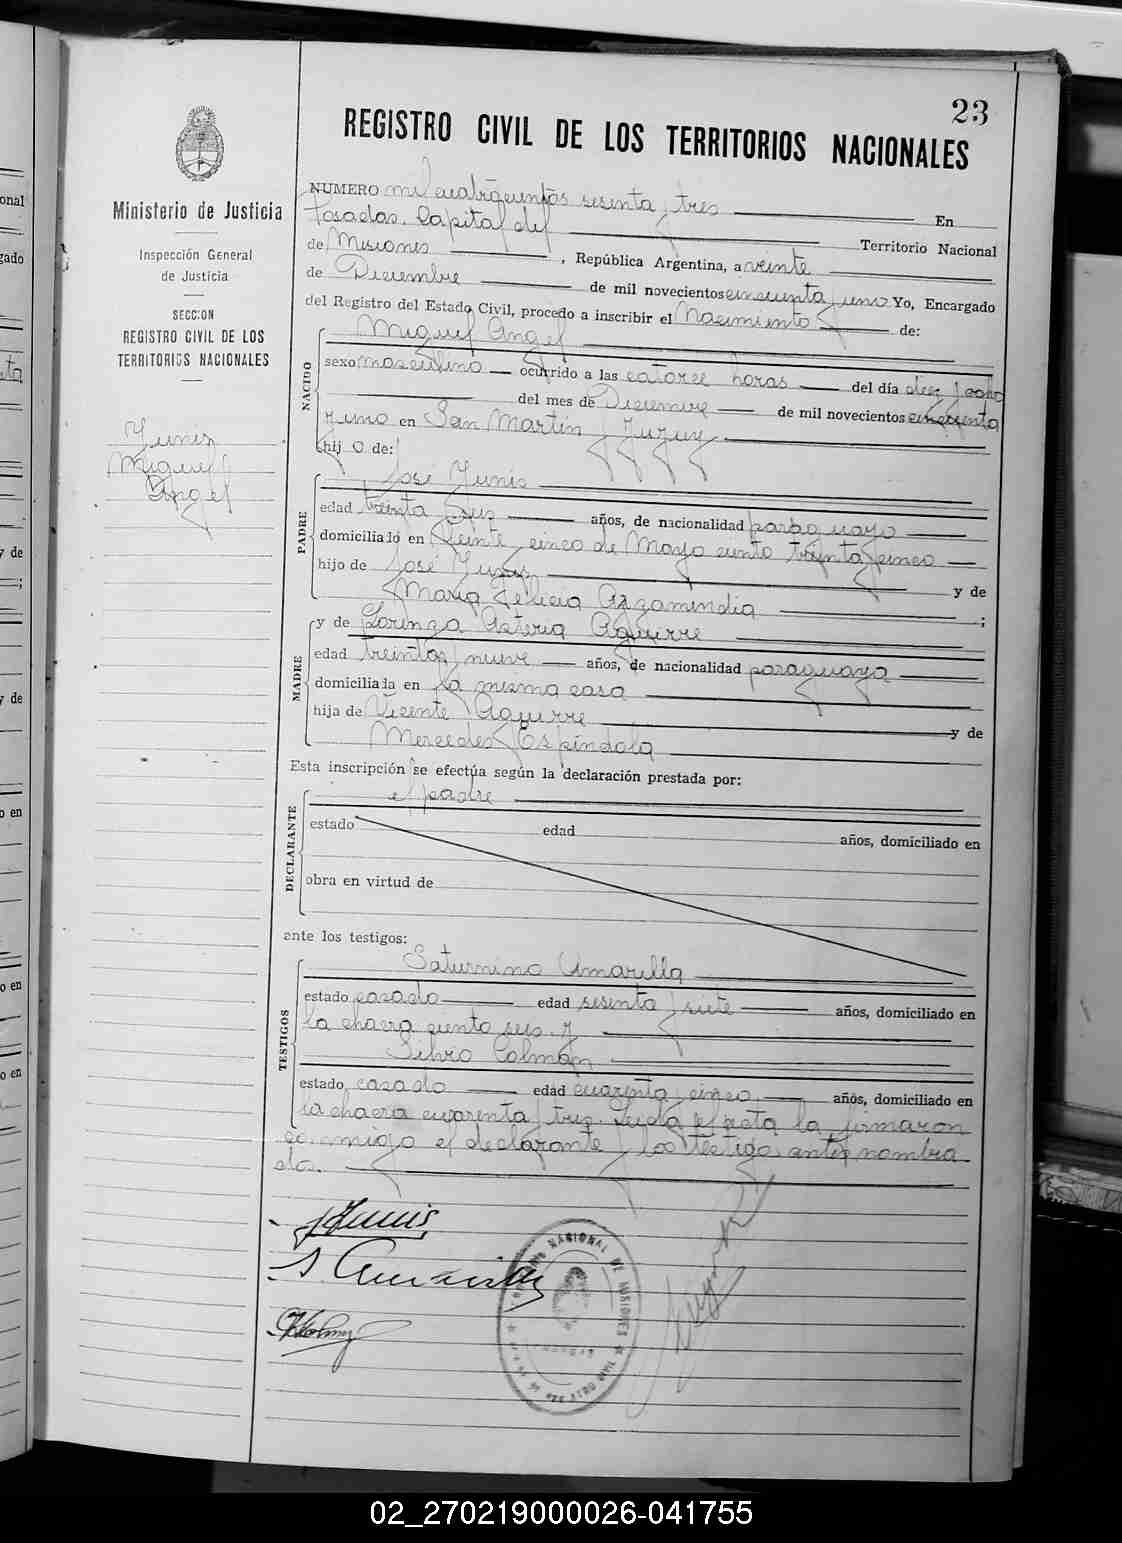 23
REGISTRO CIVIL DE LOS TERRITORIOS NACIONALES
Ministerio de Justicia
Inspección General
de Justicia
SECCION
REGISTRO CIVIL DE LOS
TERRITORIOS NACIONALES
Yunis
Miguel
Angel
NUMERO mil cuatrocientos sesenta y tres En
Posadas, Capital del Territorio Nacional
de Misiones, República Argentina, a veinte
de Diciembre de mil novecientos cincuenta y uno Yo, Encargado
del Registro del Estado Civil, procedo a inscribir el Nacimiento de:
NACIDO
Miguel Angel
sexo masculino ocurrido a las catorce horas del día diez y ocho
del mes de Diciembre de mil novecientos cincuenta
y uno en San Martin y Jujuy
hij o de:
PADRE
José Yunis
edad treinta y seis años, de nacionalidad paraguayo
domiciliado en Veinte y cinco de Mayo ciento treinta y cinco
hijo de José Yunis y de
Maria Felicia Arzamendia ;
MADRE
y de Lorenza Asteria Aguirre
edad treinta y nueve años, de nacionalidad paraguaya
domiciliada en la misma casa
hija de Vicente Aguirre y de
Mercedes Espíndola
Esta inscripción se efectúa según la declaración prestada por:
DECLARANTE
el padre
estado edad años, domiciliado en
obra en virtud de
ante los testigos:
TESTIGOS
Saturnino Amarilla
estado casado edad sesenta y siete años, domiciliado en
la chacra ciento seis. y
Silvio Colmán
estado casado edad cuarenta y cinco años, domiciliado en
la chacra cuarenta y tres. Leida el acta la firmaron
conmigo el declarante y los testigos antes nombra
dos.
JYunis
S. Amarilla
02_270219000026-041755